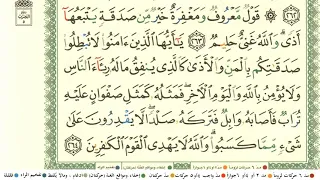 ۞ قَوْلٌ مَّعْرُوفٌ وَمَغْفِرَةٌ خَيْرٌ مِّن صَدَقَةٍ يَتْبَعُهَآ
أَذًى ۗ وَٱللَّهُ غَنِيٌّ حَلِيمٌ ٢٦٣ يَـٰٓأَيُّهَا ٱلَّذِينَ ءَامَنُوا۟ لَا تُبْطِلُوا۟
صَدَقَـٰتِكُم بِٱلْمَنِّ وَٱلْأَذَىٰ كَٱلَّذِى يُنفِقُ مَالَهُۥ رِئَآءَ ٱلنَّاسِ
وَلَا يُؤْمِنُ بِٱللَّهِ وَٱلْيَوْمِ ٱلْـَٔاخِرِ ۖ فَمَثَلُهُۥ كَمَثَلِ صَفْوَانٍ عَلَيْهِ
تُرَابٌ فَأَصَابَهُۥ وَابِلٌ فَتَرَكَهُۥ صَلْدًا ۖ لَّا يَقْدِرُونَ عَلَىٰ
شَىْءٍ مِّمَّا كَسَبُوا۟ ۗ وَٱللَّهُ لَا يَهْدِى ٱلْقَوْمَ ٱلْكَـٰفِرِينَ ٢٦٤